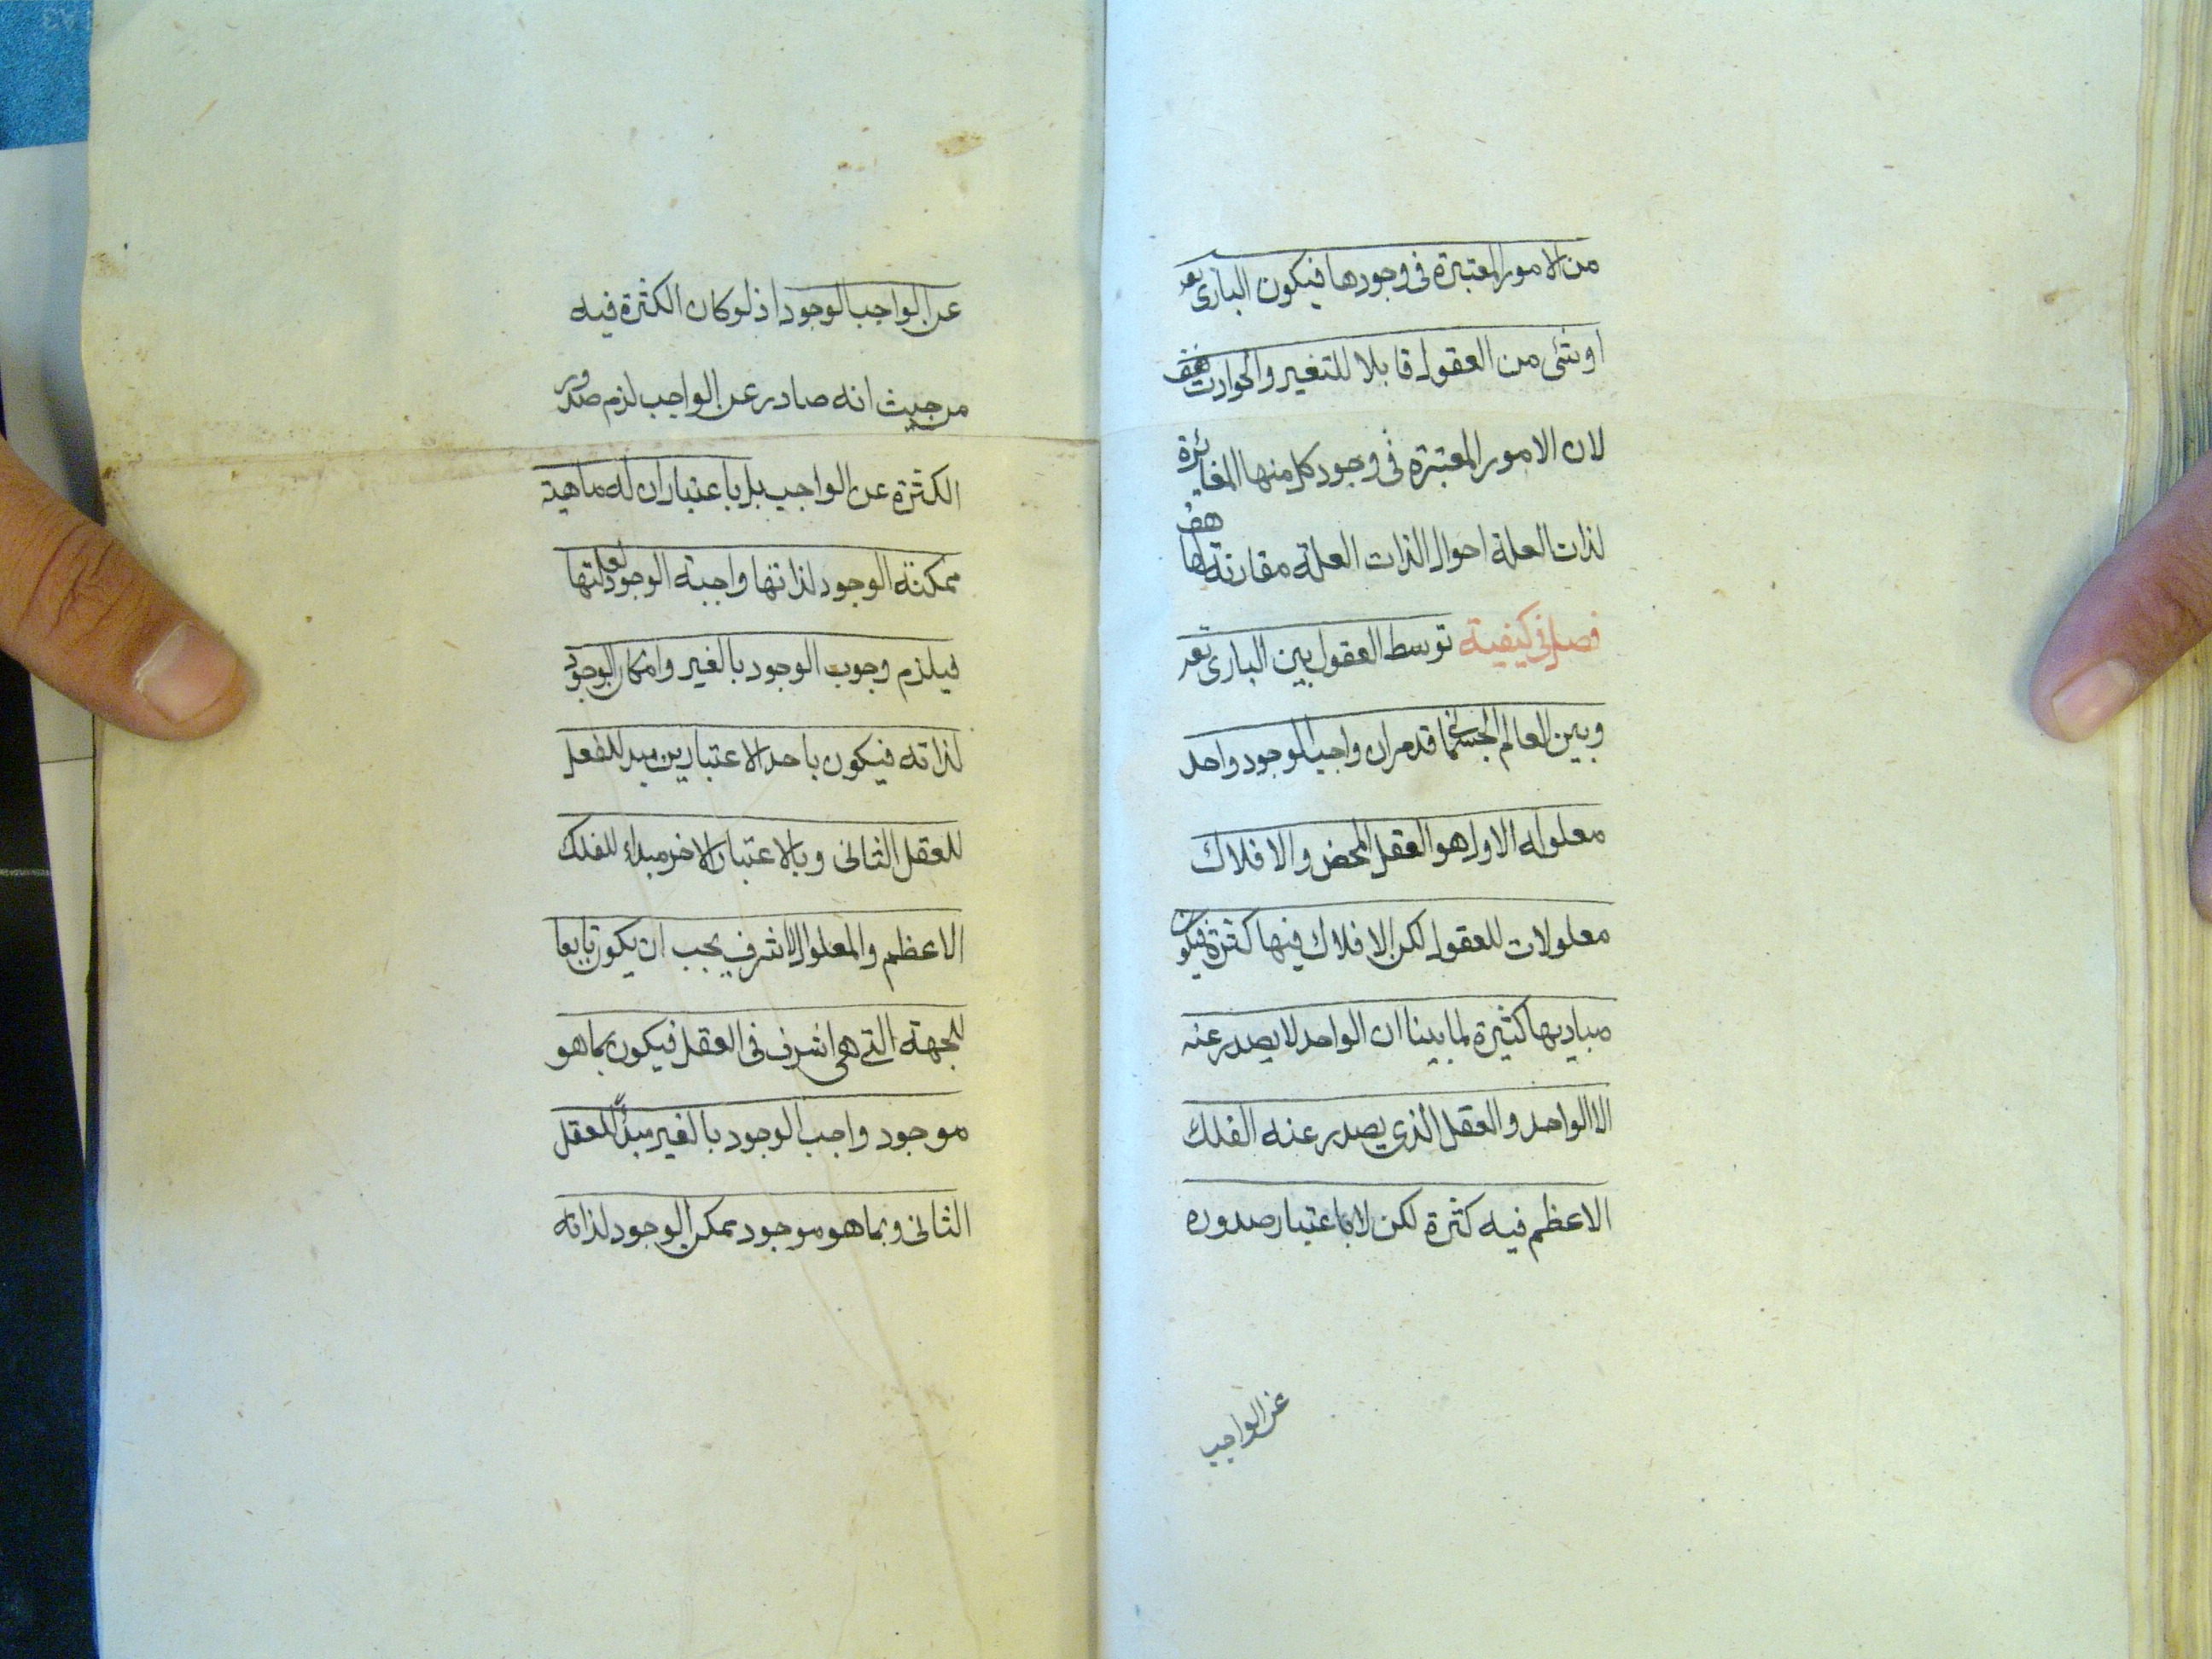 من الامور المعتبرة فى وجودها فيكون البارى تعـ
او شئ من العقول قابلا للتغير والحوادث هف
لان الامور المعتبرة فى وجود كل منها المغائرة
لذات العلة احوال لذات العلة مقارنة لها هف
فصل فى كيفية توسط العقول بين البارى تعـ
وبين العالم الجسمانى قد مر ان واجب الوجود واحد
معلوله الاول هو العقل المحض والافلاك
معلولات للعقول لكن الافلاك فيها كثرة فيكون
مباديها كثيرة لما بينا ان الواحد لا يصدر عنه
الا الواحد والعقل الذى يصدر عنه الفلك
الاعظم فيه كثرة لكن لا باعتبار صدوره
عن الواجب
عن الواجب الوجود اذ لو كان الكثرة فيه
من حيث انه صادر عن الواجب لزم صدور
الكثرة عن الواجب بل باعتبار ان له ماهية
ممكنة الوجود لذاتها واجبة الوجود لعلتها
فيلزم وجوب الوجود بالغير وامكان الوجود
لذاته فيكون باحد الاعتبارين مبد للفعل
للعقل الثانى وبالاعتبار الاخر مبداء للفلك
الاعظم والمعلول الاشرف يجب ان يكون تابعا
للجهة التى هى اشرف فى العقل فيكون بما هو
موجود واجب الوجود بالغير مبدأ للعقل
الثانى وبما هو موجود ممكن الوجود لذاته